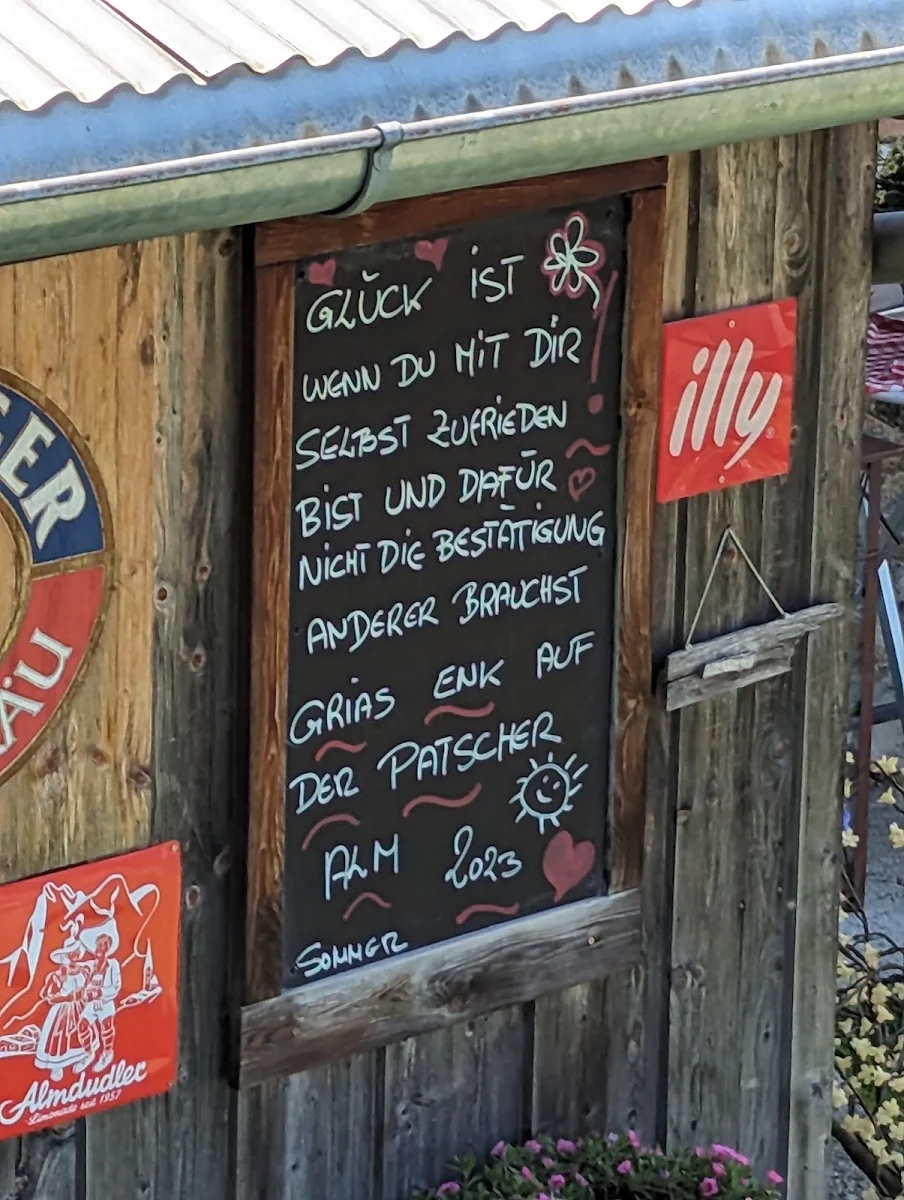 GLÜCK IST
WENN DU MIT DIR
SELBST ZUFRIEDEN
BIST UND DAFÜR
NICHT DIE BESTÄTIGUNG
ANDERER BRAUCHST
GRIAS ENK AUF
DER PATSCHER
ALM 2023
SOMMER
illy
GER
ÄU
Almdudler
Limonade seit 1957